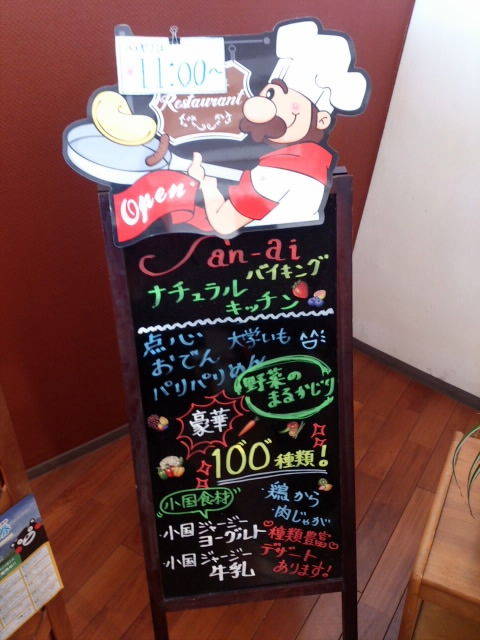 バイキングは
11:00〜
Restaurant
Open
San-ai
バイキング
ナチュラル
キッチン
点心 大学いも
おでん
パリパリめん
野菜の
まるかじり
豪華
100種類!
小国食材
・鶏から
・肉じゃが
・小国ジャージー
ヨーグルト
・小国ジャージー
牛乳
種類豊富
デザート
あります!